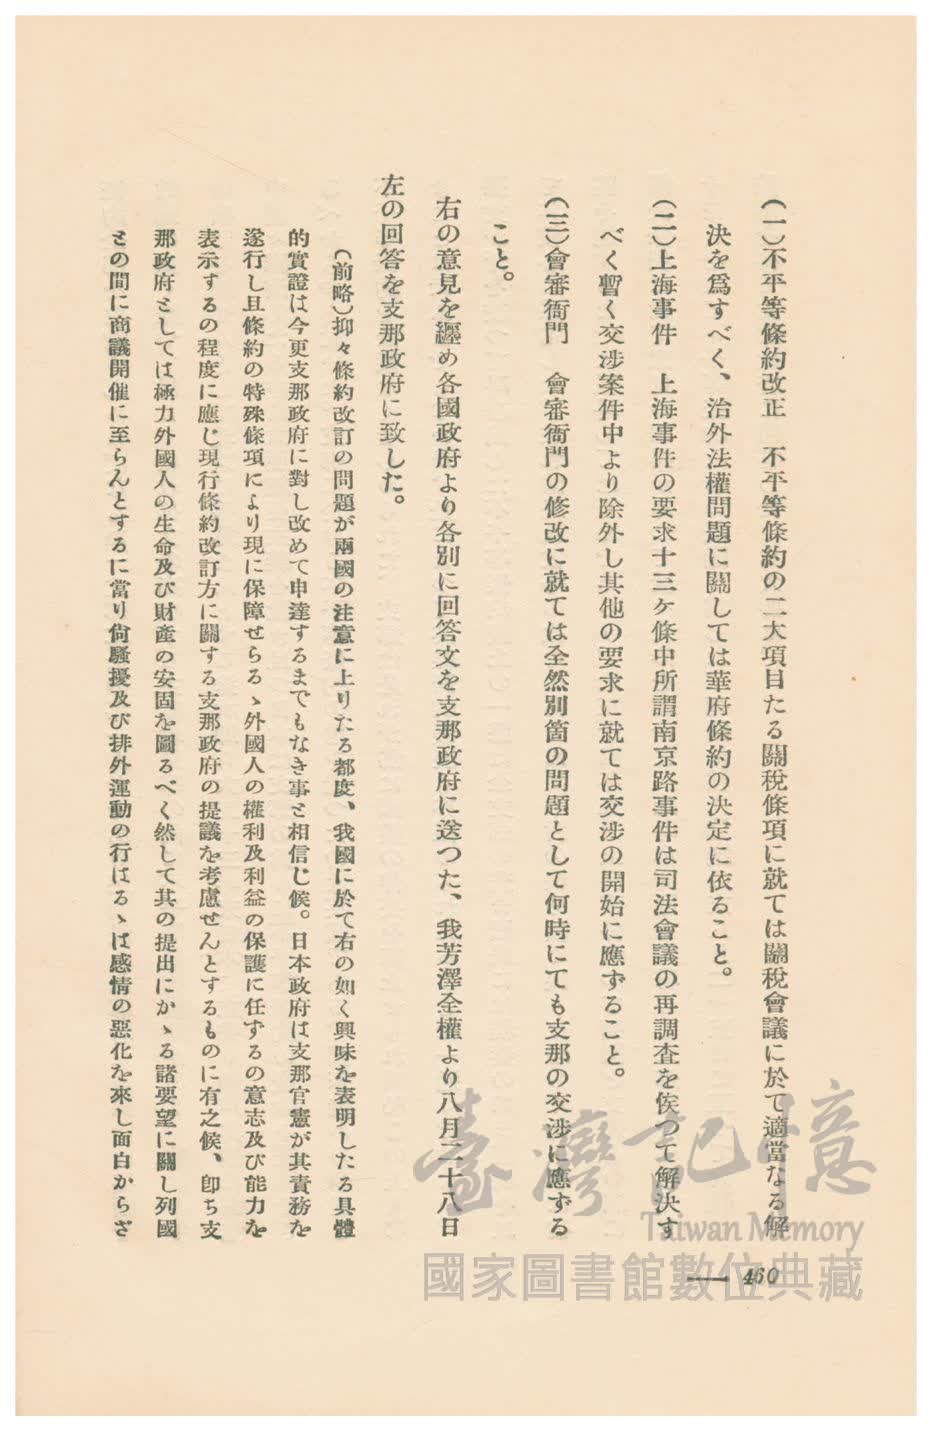 (一)不平等條約改正　不平等條約の二大項目たる關稅條項に就ては關稅會議に於て適當なる解
決を爲すべく、治外法權問題に關しては華府條約の決定に依ること。
(二)上海事件　上海事件の要求十三ケ條中所謂南京路事件は司法會議の再調査を俟つて解決す
べく暫く交涉案件中より除外し其他の要求に就ては交涉の開始に應ずること。
(三)會審衙門　會審衙門の修改に就ては全然別箇の問題として何時にても支那の交涉に應ずる
こと。
右の意見を纒め各國政府より各別に回答文を支那政府に送つた、我芳澤全權より八月二十八日
左の回答を支那政府に致した。
(前略)抑々條約改訂の問題が兩國の注意に上りたる都度、我國に於て右の如く興味を表明したる具體
的實證は今更支那政府に對し改めて申達するまでもなき事と相信じ候。日本政府は支那官憲が其責務を
遂行し且條約の特殊條項により現に保障せらるゝ外國人の權利及利益の保護に任ずるの意志及び能力を
表示するの程度に應じ現行條約改訂方に關する支那政府の提議を考慮せんとするものに有之候、卽ち支
那政府としては極力外國人の生命及び財產の安固を圖るべく然して其の提出にかゝる諸要望に關し列國
との間に商議開催に至らんとするに當り尙騷擾及び排外運動の行はるゝば感情の惡化を來し面白からざ
460
臺灣記憶
Taiwan Memory
國家圖書館數位典藏